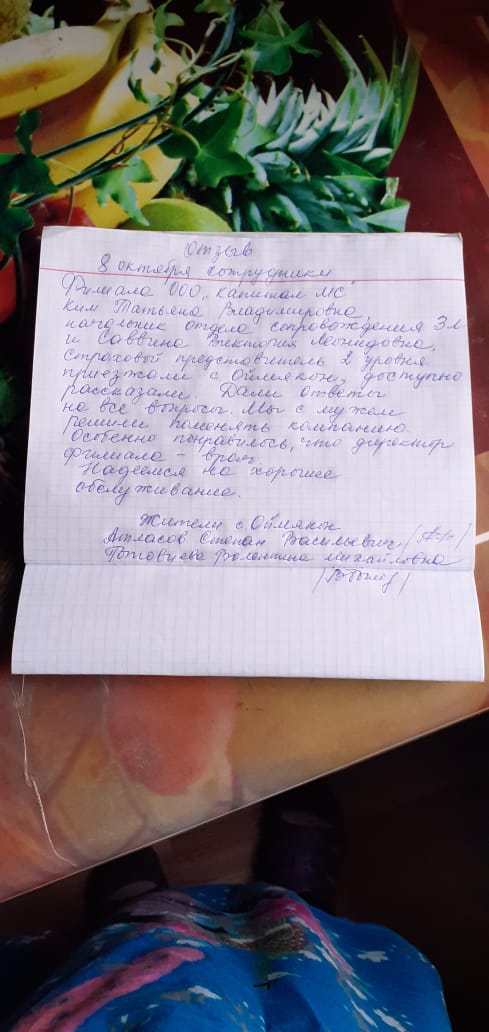 Отзыв
8 октября сотрудники
Филиала ООО „Капитал МС"
Ким Татьяна Владимировна,
начальник отдела сопровождения ЗЛ
и Саввина Виктория Леонидовна,
страховый представитель 2 уровня
приезжали с. Оймякон, доступно
рассказали. Дали ответы
на все вопросы. Мы с мужем
решили поменять компанию.
Особенно понравилось, что директор
филиала - врач.
Надеемся на хорошее
обслуживание.
Жители с Оймякон
Атласов Степан Васильевич
Готовцева Валентина Михайловна